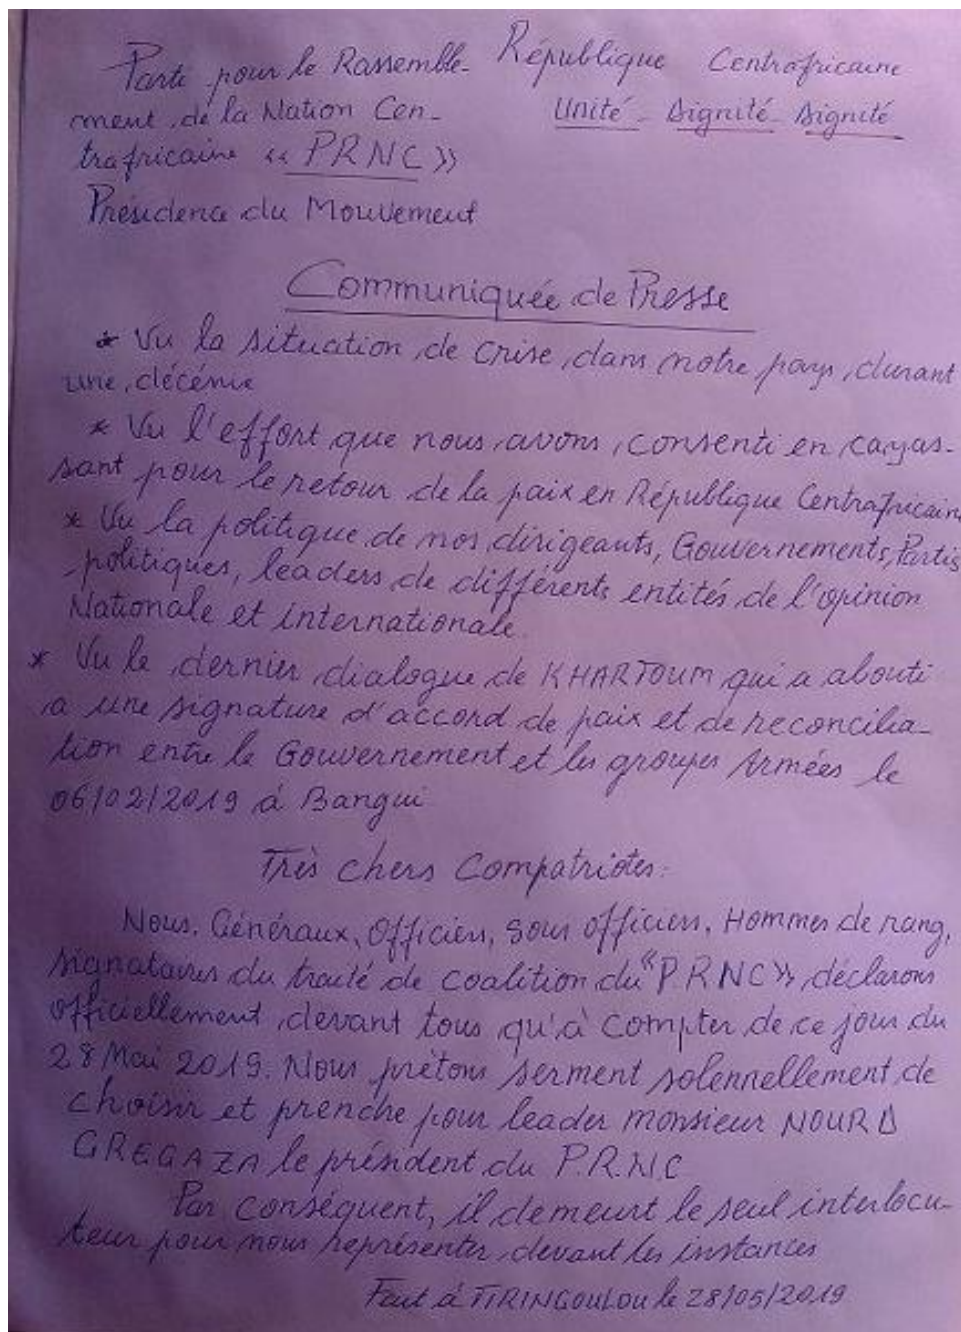 Parti pour le Rassemble-
ment de la Nation Cen-
trafricaine « PRNC »
Présidence du Mouvement
République Centrafricaine
Unité - Dignité - Dignité
Communiquée de Presse
* Vu la situation de crise dans notre pays durant
une décénie
* Vu l'effort que nous avons consenti en
sant pour le retour de la paix en République Centrafricaine
* Vu la politique de nos dirigeants, Gouvernements, Partis
politiques, leaders de différents entités de l'opinion
Nationale et internationale.
* Vu le dernier dialogue de KHARTOUM qui a abouti
a une signature d'accord de paix et de reconcilia-
tion entre le Gouvernement et les groupes Armées le
06/02/2019 à Bangui
Très chers Compatriotes.
Nous, Généraux, Officiers, Sous officiers, Hommes de rang,
signataires du traité de coalition du "P.RNC" déclarons
officiellement devant tous qu'à compter de ce jour du
28 Mai 2019. Nous prêtons serment solennellement de
choisir et prendre pour leader monsieur NOURD
GREGAZA le président du P.R.N.C
Par conséquent, il demeurt le seul interlocu-
teur pour nous représenter devant les instances
Fait à TIRINGOULOU le 28/05/2019